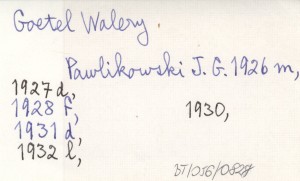 Goetel Walery.
Pawlikowski J. G. 1926 m,
1927 d,
1928 f, 1930,
1931 d,
1932 l,
BT/056/0827